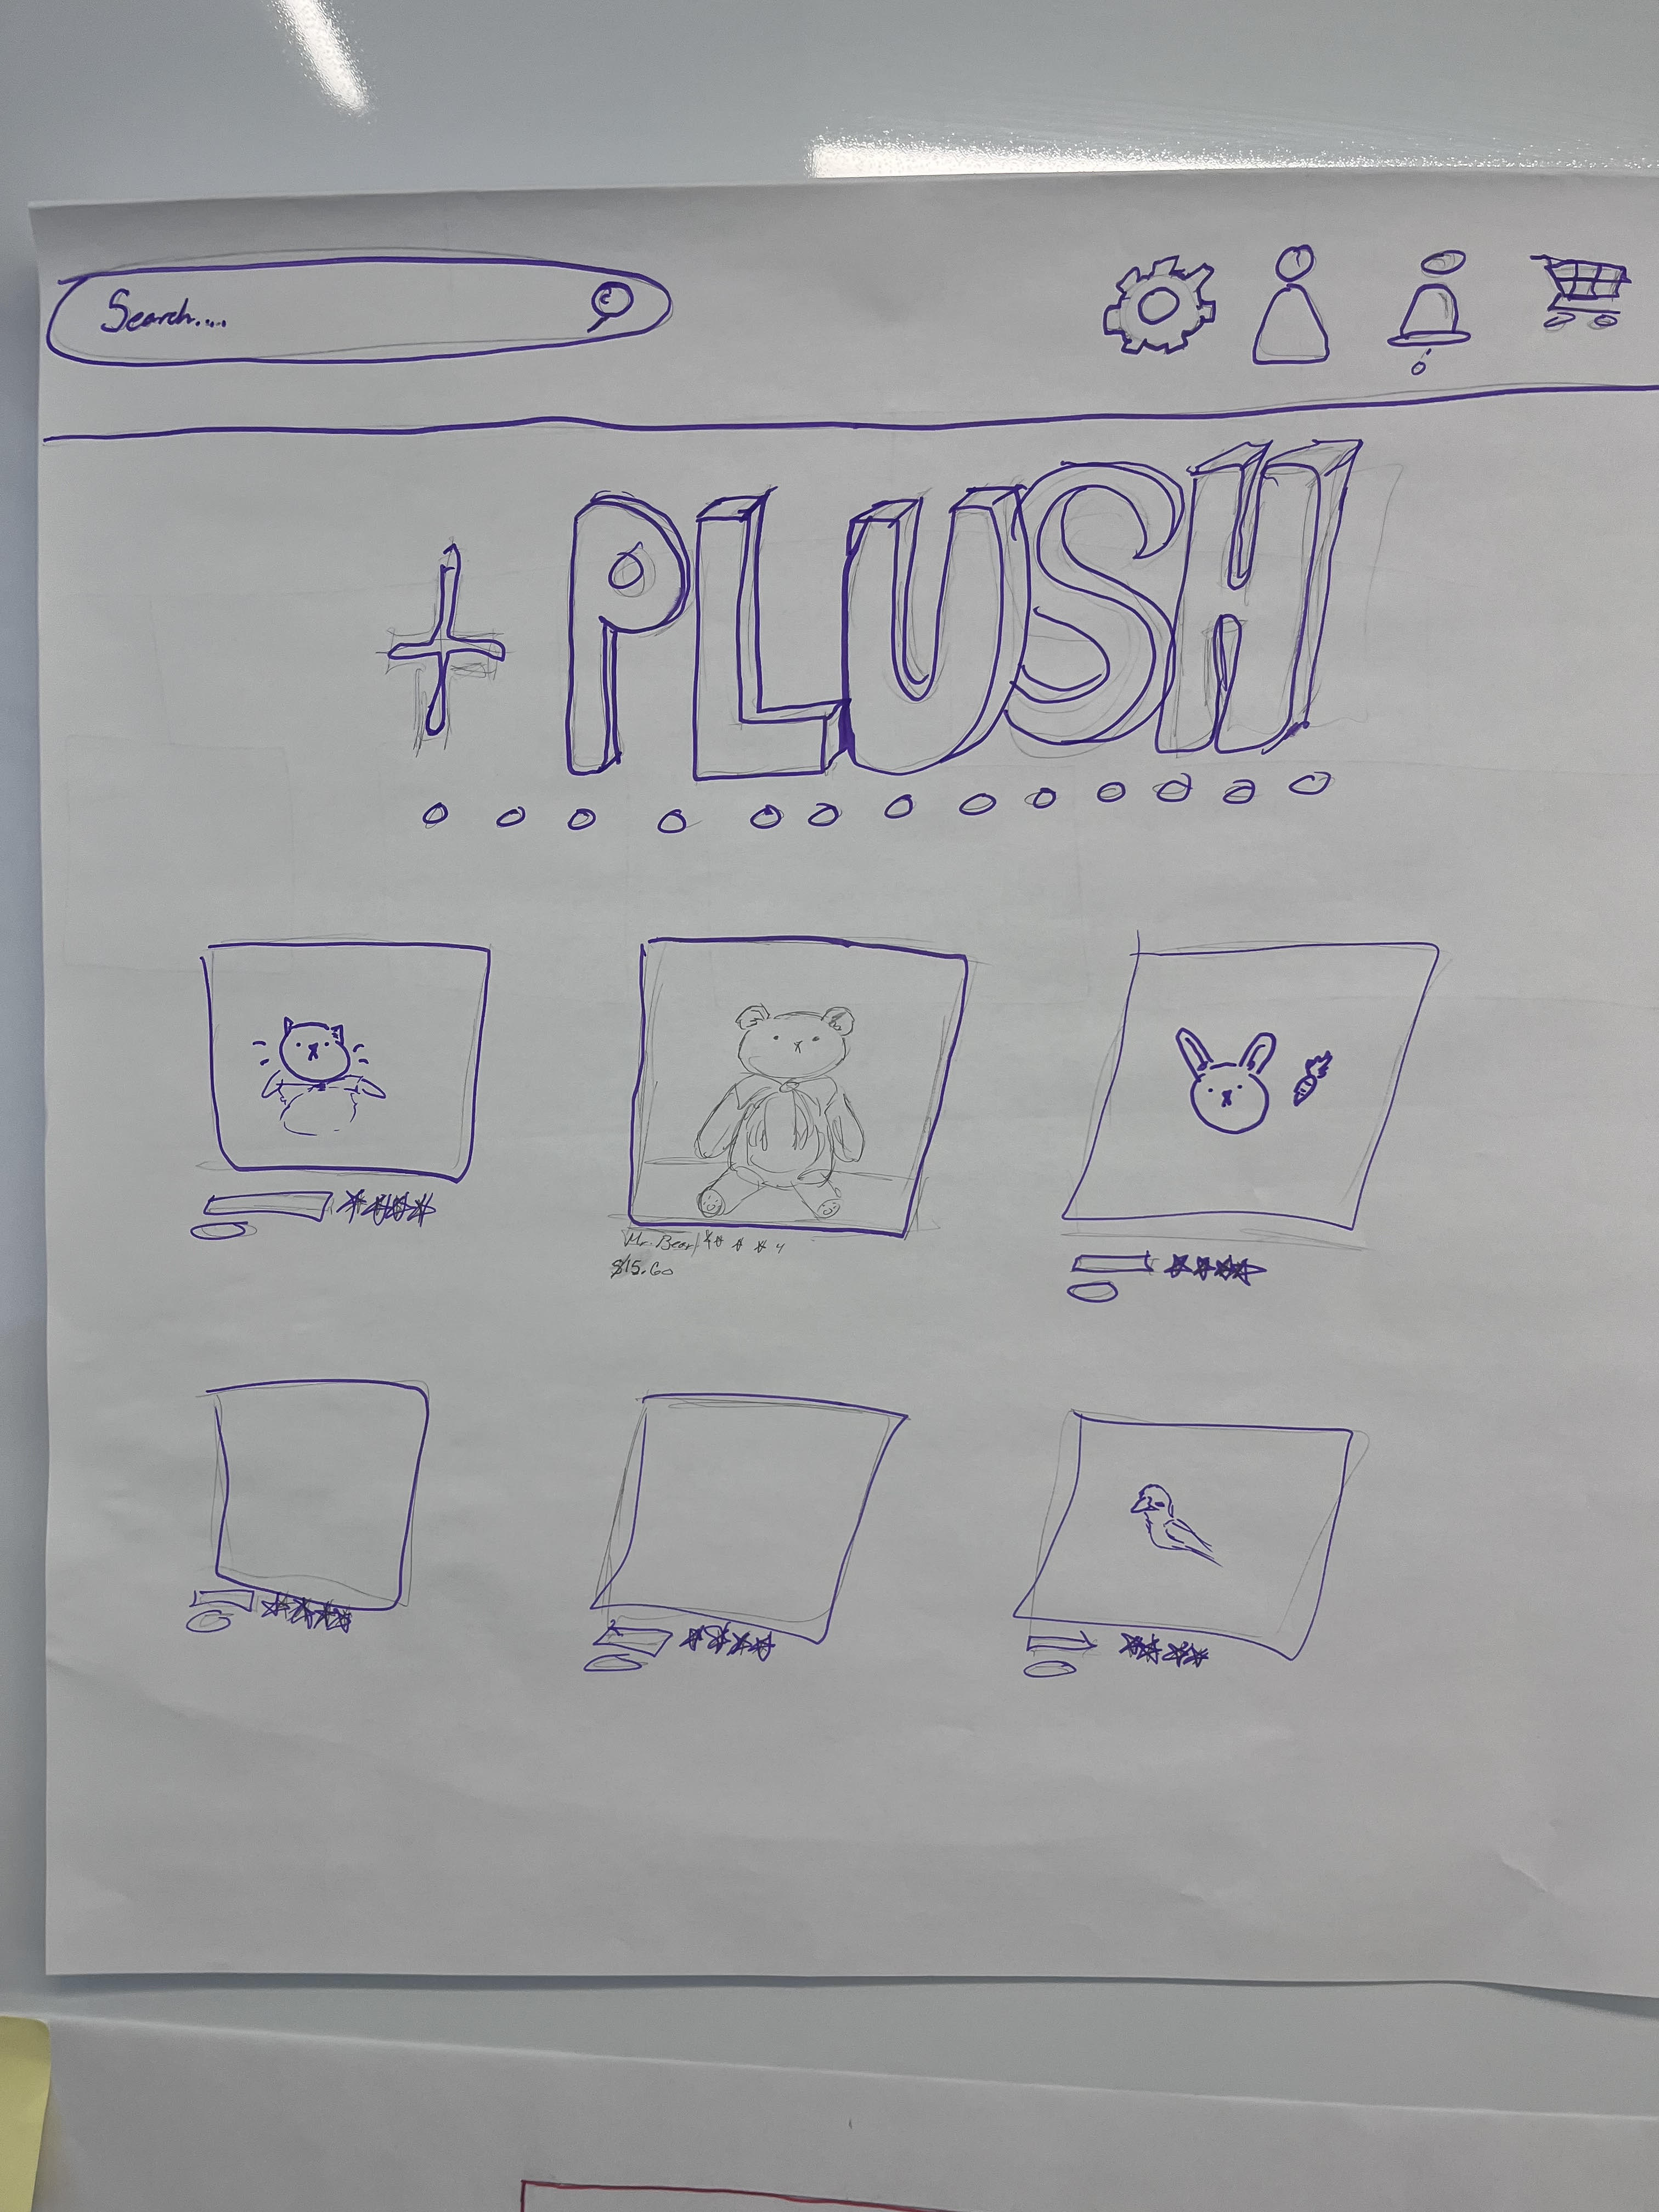 Search....
+ PLUSH
Mr. Bear
$15.60